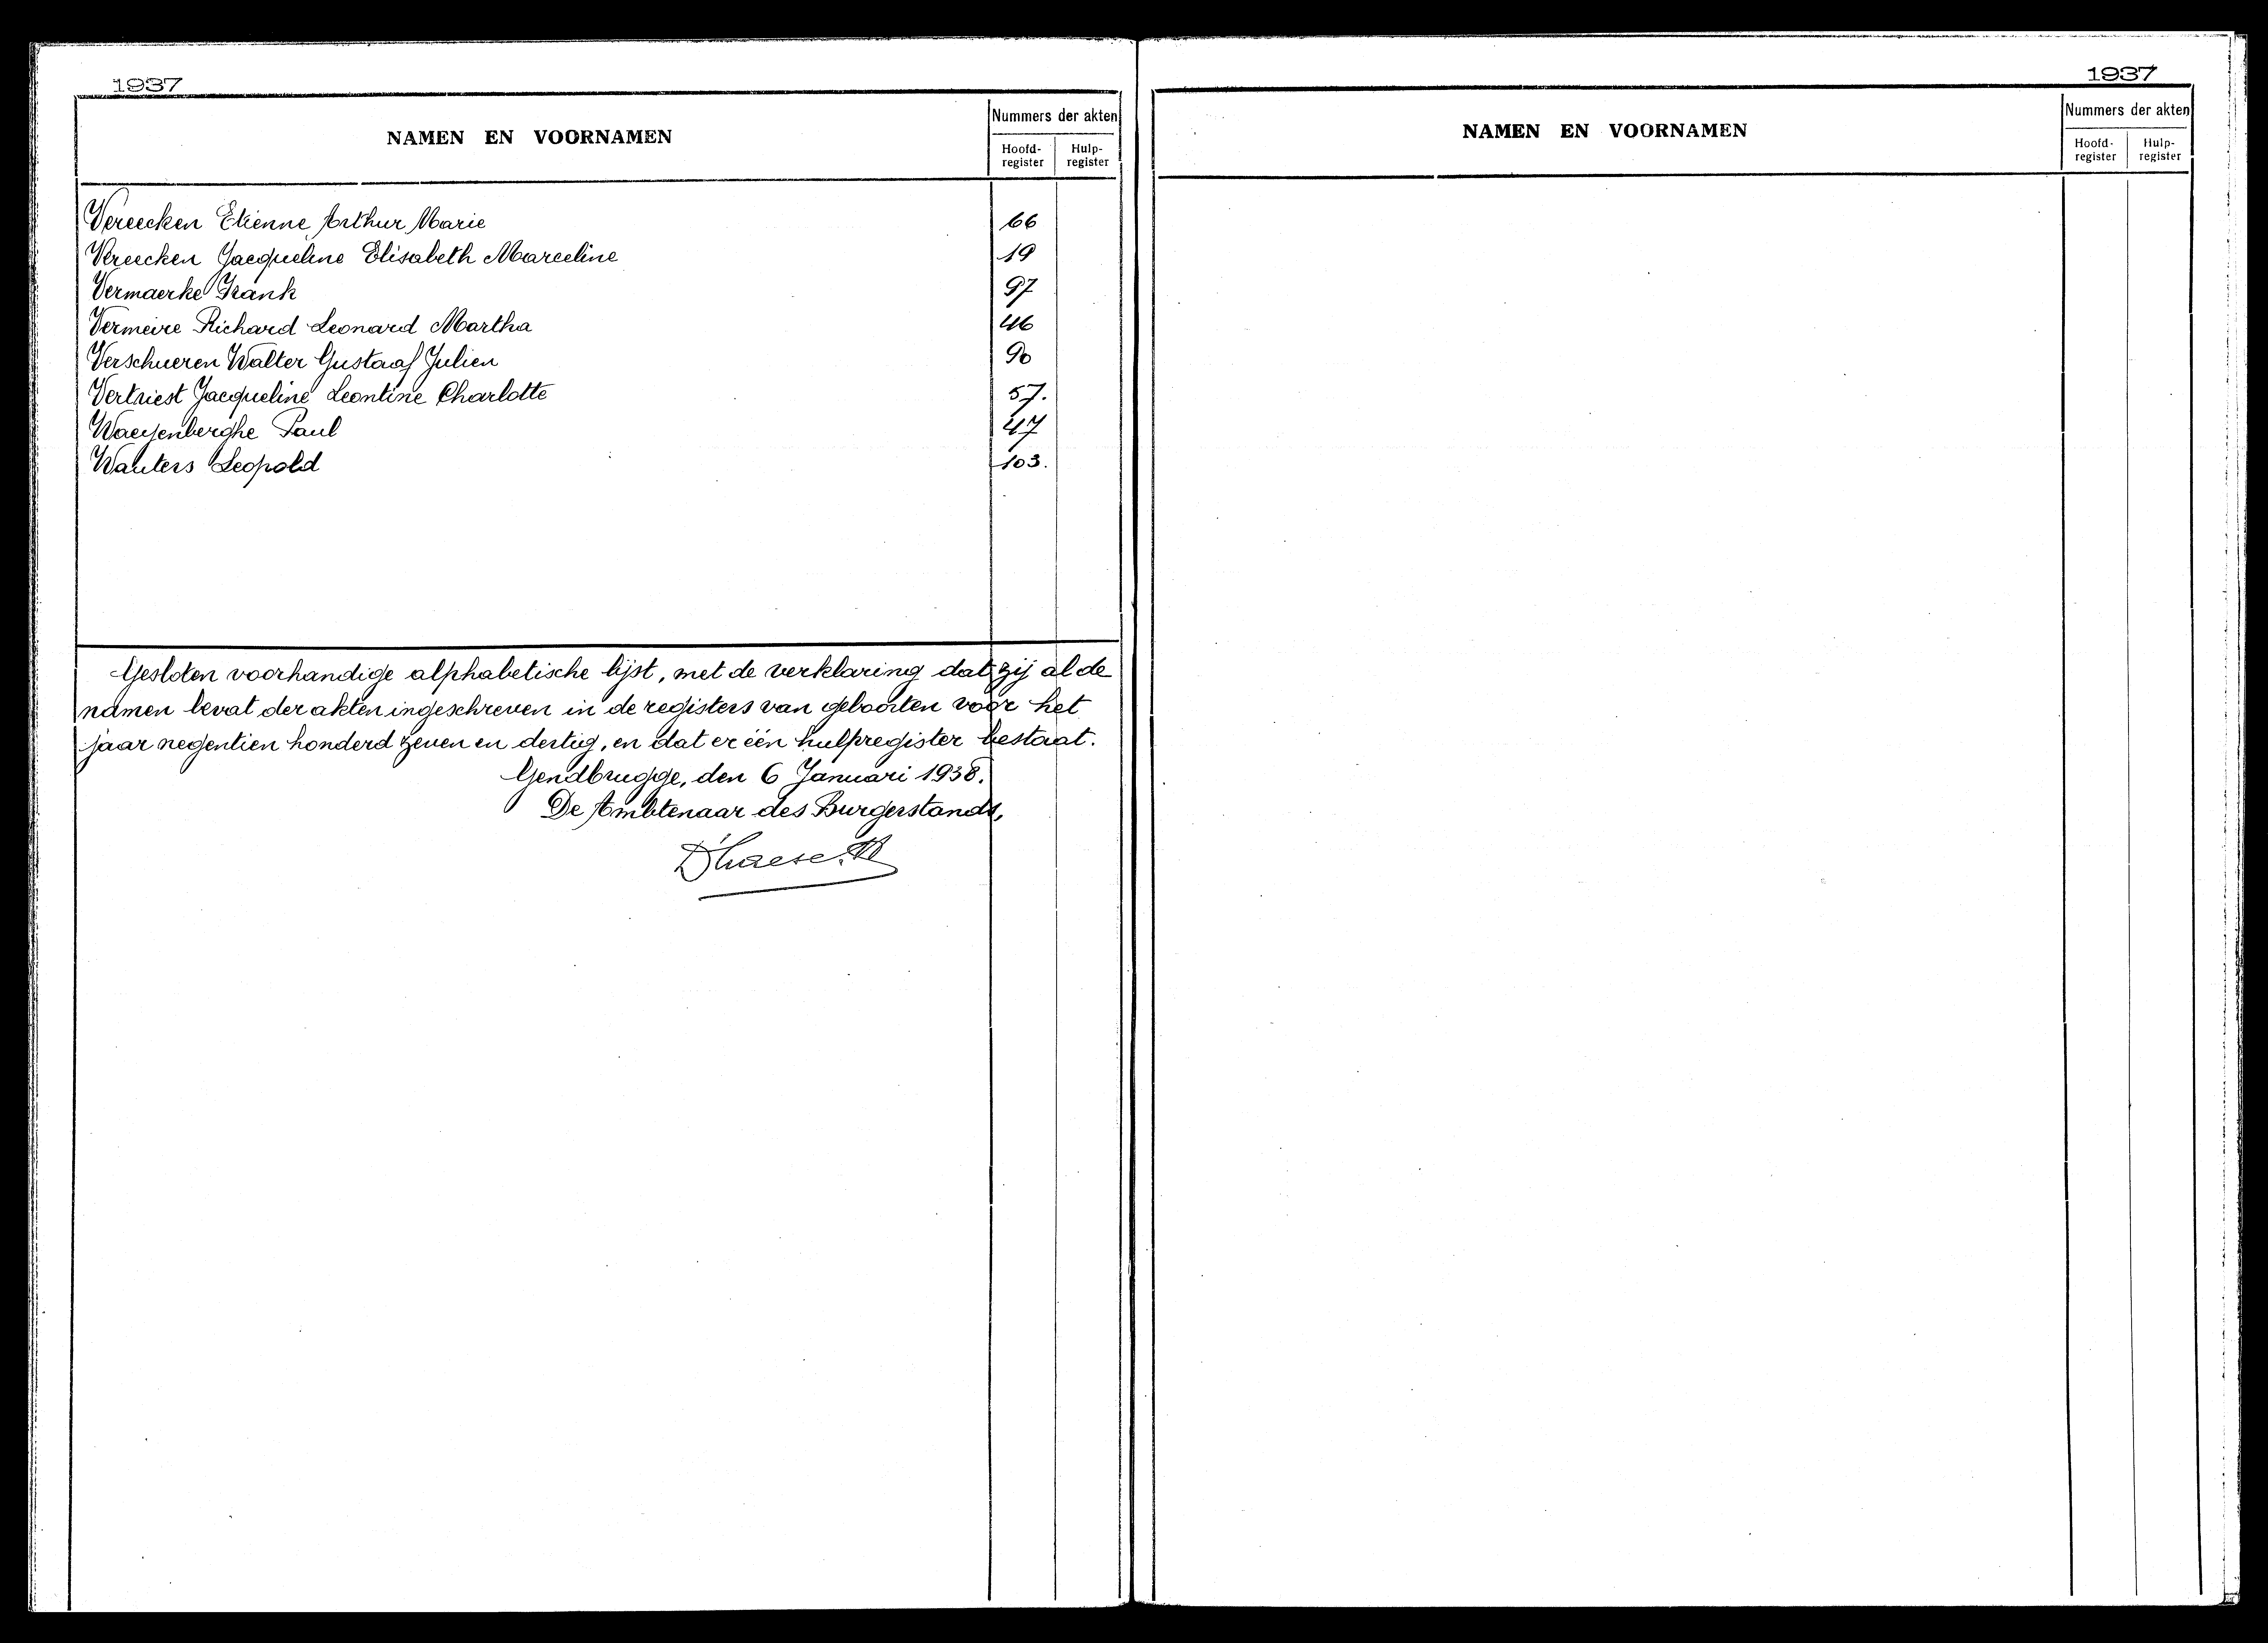 1937
NAMEN EN VOORNAMEN
Nummers der akten
Hoofd-register
Hulp-register
Vereecken Etienne Arthur Marie 66
Vereecken Jacqueline Elisabeth Marceline 19
Vermaerke Frank 97
Vermeire Richard Leonard Martha 46
Verschueren Walter Gustaaf Julien 90
Vertriest Jacqueline Leontine Charlotte 57.
Waeyenberghe Paul 47
Wauters Leopold 103.
Gesloten voorhandige alphabetische lijst, met de verklaring dat zij al de
namen bevat der akten ingeschreven in de registers van geboorten voor het
jaar negentien honderd zeven en dertig, en dat er één hulpregister bestaat.
Gendbrugge, den 6 Januari 1938.
De Ambtenaar des Burgerstands,
1937
NAMEN EN VOORNAMEN
Nummers der akten
Hoofd-register
Hulp-register